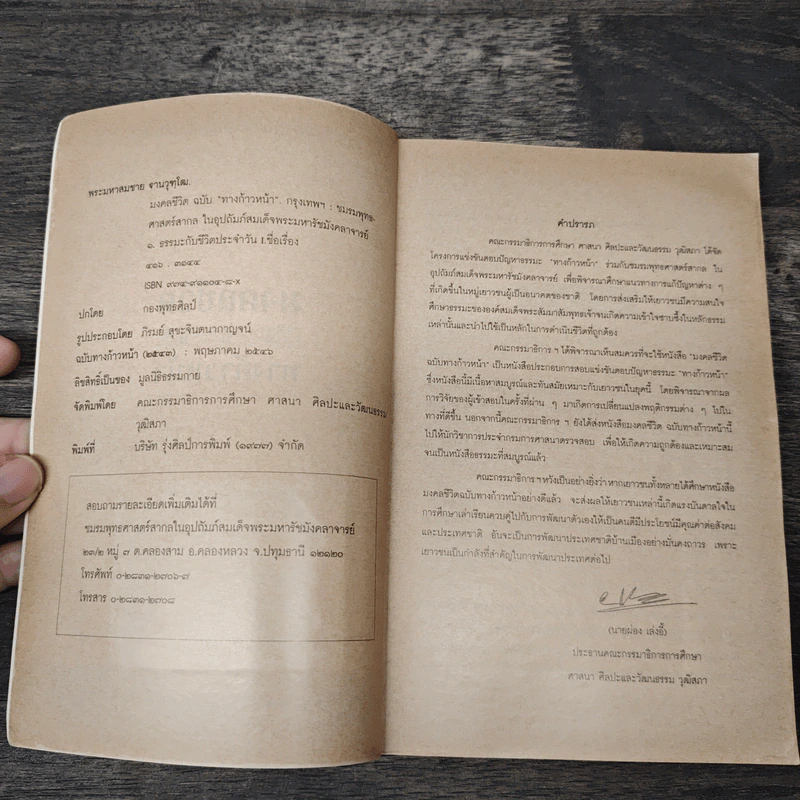 พระมหาสมชาย ฐานวุฑฺโฒ.
มงคลชีวิต ฉบับ "ทางก้าวหน้า". กรุงเทพฯ : ชมรมพุทธ-
ศาสตร์สากล ในอุปถัมภ์สมเด็จพระมหารัชมังคลาจารย์
๑. ธรรมะกับชีวิตประจำวัน I.ชื่อเรื่อง
๔๑๖ . ๓๑๔๔
ISBN ๙๗๔-๙๑๑๐๔-๘-X
ปกโดย กองพุทธศิลป์
รูปประกอบโดย ภิรมย์ สุขะจินตนากาญจน์
ฉบับทางก้าวหน้า (๒๕๔๓) : พฤษภาคม ๒๕๔๖
ลิขสิทธิ์เป็นของ มูลนิธิธรรมกาย
จัดพิมพ์โดย คณะกรรมาธิการการศึกษา ศาสนา ศิลปะและวัฒนธรรม
วุฒิสภา
พิมพ์ที่ บริษัท รุ่งศิลป์การพิมพ์ (๑๙๗๗) จำกัด
สอบถามรายละเอียดเพิ่มเติมได้ที่
ชมรมพุทธศาสตร์สากลในอุปถัมภ์สมเด็จพระมหารัชมังคลาจารย์
๒๓/๒ หมู่ ๗ ต.คลองสาม อ.คลองหลวง จ.ปทุมธานี ๑๒๑๒๐
โทรศัพท์ ๐-๒๘๓๑-๒๗๐๖-๗
โทรสาร ๐-๒๘๓๑-๒๗๐๘
คำปรารภ
คณะกรรมาธิการการศึกษา ศาสนา ศิลปะและวัฒนธรรม วุฒิสภา ได้จัด
โครงการแข่งขันตอบปัญหาธรรมะ "ทางก้าวหน้า" ร่วมกับชมรมพุทธศาสตร์สากล ใน
อุปถัมภ์สมเด็จพระมหารัชมังคลาจารย์ เพื่อพิจารณาศึกษาแนวทางการแก้ปัญหาต่าง ๆ
ที่เกิดขึ้นในหมู่เยาวชนผู้เป็นอนาคตของชาติ โดยการส่งเสริมให้เยาวชนมีความสนใจ
ศึกษาธรรมะขององค์สมเด็จพระสัมมาสัมพุทธเจ้าจนเกิดความเข้าใจซาบซึ้งในหลักธรรม
เหล่านั้นและนำไปใช้เป็นหลักในการดำเนินชีวิตที่ถูกต้อง
คณะกรรมาธิการ ฯ ได้พิจารณาเห็นสมควรที่จะใช้หนังสือ "มงคลชีวิต
ฉบับทางก้าวหน้า" เป็นหนังสือประกอบการสอบแข่งขันตอบปัญหาธรรมะ "ทางก้าวหน้า"
ซึ่งหนังสือนี้มีเนื้อหาสมบูรณ์และทันสมัยเหมาะกับเยาวชนในยุคนี้ โดยพิจารณาจากผล
การวิจัยของผู้เข้าสอบในครั้งที่ผ่าน ๆ มาเกิดการเปลี่ยนแปลงพฤติกรรมต่าง ๆ ไปใน
ทางที่ดีขึ้น นอกจากนี้คณะกรรมาธิการ ฯ ยังได้ส่งหนังสือมงคลชีวิต ฉบับทางก้าวหน้านี้
ไปให้นักวิชาการประจำกรมการศาสนาตรวจสอบ เพื่อให้เกิดความถูกต้องและเหมาะสม
จนเป็นหนังสือธรรมะที่สมบูรณ์แล้ว
คณะกรรมาธิการ ฯหวังเป็นอย่างยิ่งว่าหากเยาวชนทั้งหลายได้ศึกษาหนังสือ
มงคลชีวิตฉบับทางก้าวหน้าอย่างดีแล้ว จะส่งผลให้เยาวชนเหล่านี้เกิดแรงบันดาลใจใน
การศึกษาเล่าเรียนควบคู่ไปกับการพัฒนาตัวเองให้เป็นคนดีมีประโยชน์มีคุณค่าต่อสังคม
และประเทศชาติ อันจะเป็นการพัฒนาประเทศชาติบ้านเมืองอย่างมั่นคงถาวร เพราะ
เยาวชนเป็นกำลังที่สำคัญในการพัฒนาประเทศต่อไป
(นายผ่อง เล่งอี้)
ประธานคณะกรรมาธิการการศึกษา
ศาสนา ศิลปะและวัฒนธรรม วุฒิสภา